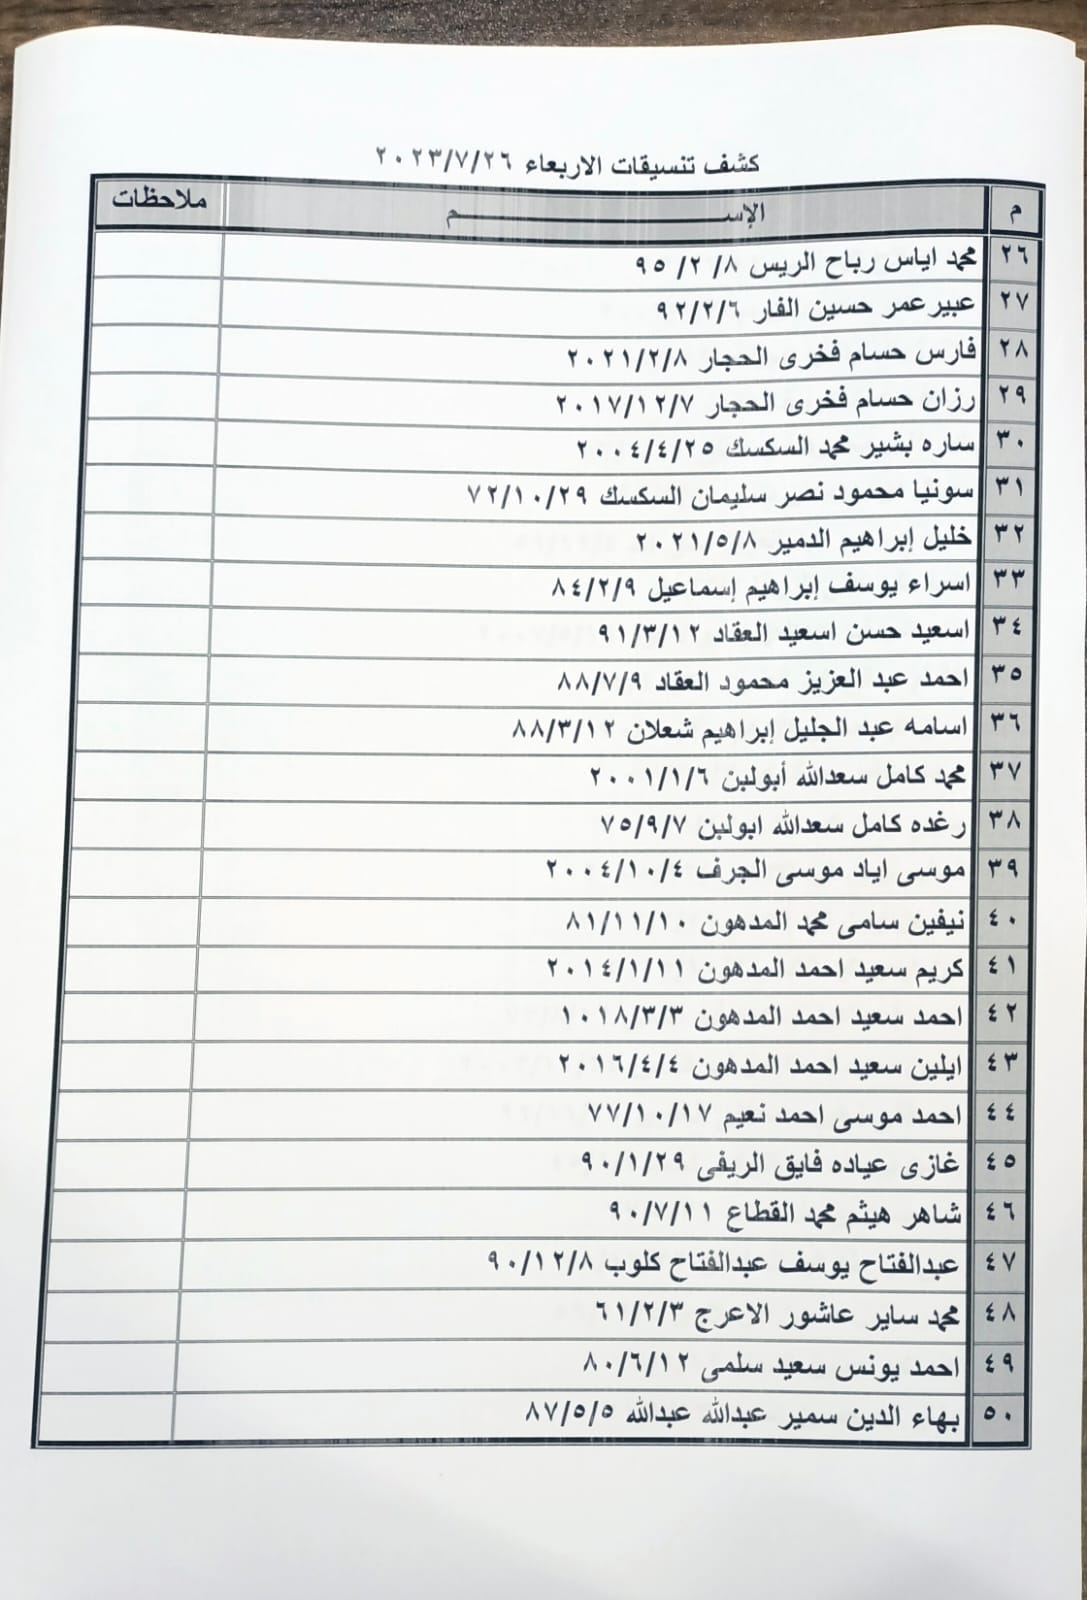 كشف تنسيقات الاربعاء ٢٠٢٣/٧/٢٦
م الإســـــــم ملاحظات
٢٦ محمد اياس رباح الريس ٩٥/٢/٨
٢٧ عبيرعمر حسين الفار ٩٢/٢/٦
٢٨ فارس حسام فخرى الحجار ٢٠٢١/٢/٨
٢٩ رزان حسام فخرى الحجار ٢٠١٧/١٢/٧
٣٠ ساره بشير محمد السكسك ٢٠٠٤/٤/٢٥
٣١ سونيا محمود نصر سليمان السكسك ٧٢/١٠/٢٩
٣٢ خليل إبراهيم الدمير ٢٠٢١/٥/٨
٣٣ اسراء يوسف إبراهيم إسماعيل ٨٤/٢/٩
٣٤ اسعيد حسن اسعيد العقاد ٩١/٣/١٢
٣٥ احمد عبد العزيز محمود العقاد ٨٨/٧/٩
٣٦ اسامه عبد الجليل إبراهيم شعلان ٨٨/٣/١٢
٣٧ محمد كامل سعدالله أبولبن ٢٠٠١/١/٦
٣٨ رغده كامل سعدالله ابولبن ٧٥/٩/٧
٣٩ موسى اياد موسى الجرف ٢٠٠٤/١٠/٤
٤٠ نيفين سامى محمد المدهون ٨١/١١/١٠
٤١ كريم سعيد احمد المدهون ٢٠١٤/١/١١
٤٢ احمد سعيد احمد المدهون ١٠١٨/٣/٣
٤٣ ايلين سعيد احمد المدهون ٢٠١٦/٤/٤
٤٤ احمد موسى احمد نعيم ٧٧/١٠/١٧
٤٥ غازى عياده فايق الريفى ٩٠/١/٢٩
٤٦ شاهر هيثم محمد القطاع ٩٠/٧/١١
٤٧ عبدالفتاح يوسف عبدالفتاح كلوب ٩٠/١٢/٨
٤٨ محمد ساير عاشور الاعرج ٦١/٢/٣
٤٩ احمد يونس سعيد سلمى ٨٠/٦/١٢
٥٠ بهاء الدين سمير عبدالله عبدالله ٨٧/٥/٥